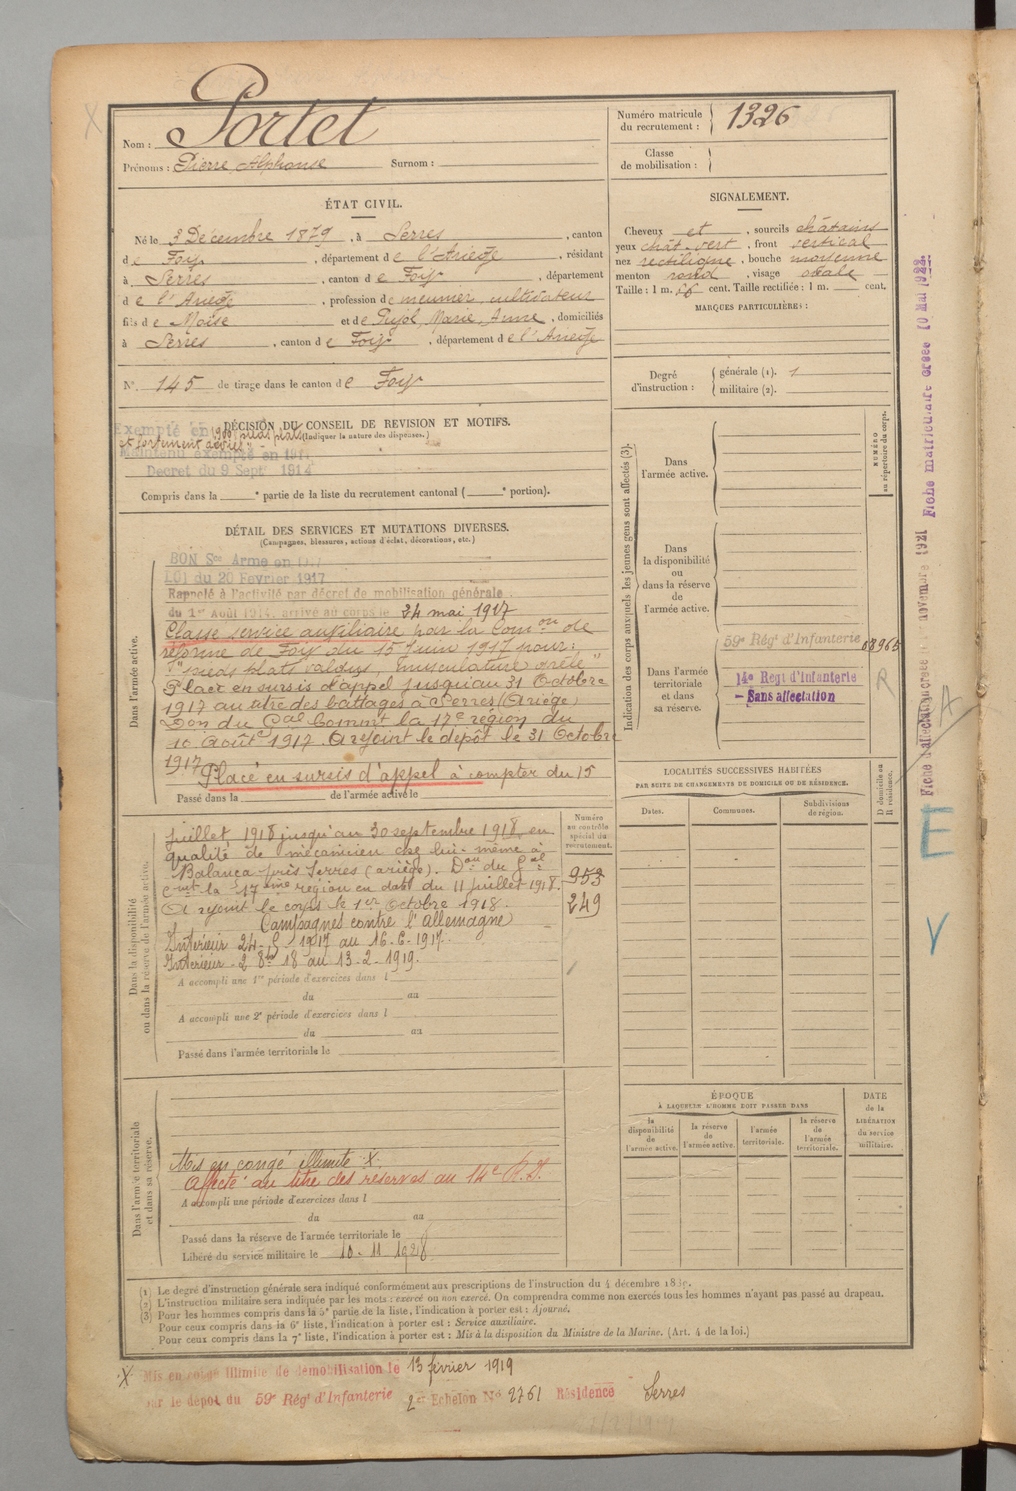 Portet
Nom :
Prénoms : Pierre Alphonse Surnom :
Numéro matricule du recrutement : 1326
Classe de mobilisation :
ÉTAT CIVIL.
Né le 3 Décembre 1879, à Serres, canton
de Foix, département de l'Ariège, résidant
à Serres, canton de Foix, département
de l'Ariège, profession de meunier, cultivateur
fils de Moïse et de Pujol, Marie, Anne, domiciliés
à Serres, canton de Foix, département de l'Ariège
N° 145 de tirage dans le canton de Foix
SIGNALEMENT.
Cheveux et, sourcils châtains
yeux chât. vert, front vertical
nez rectiligne, bouche moyenne
menton rond, visage ovale
Taille : 1 m. cent. Taille rectifiée : 1 m. cent.
MARQUES PARTICULIÈRES :
Degré d'instruction : générale (1). 1
militaire (2).
DÉCISION DU CONSEIL DE REVISION ET MOTIFS.
(Indiquer la nature des dispenses.)
Exempté en 1900 pieds plats
et forcement
Maintenu exempté en 191
Decret du 9 Sept 1914
Compris dans la e partie de la liste du recrutement cantonal ( e portion).
DÉTAIL DES SERVICES ET MUTATIONS DIVERSES.
(Campagnes, blessures, actions d'éclat, décorations, etc.)
Dans l'armée active.
BON Sce Arme en
LOI du 20 Fevrier 1917
Rappelé à l'activité par décret de mobilisation générale
du 1er Août 1914, arrivé au corps le 24 mai 1917
Classé service auxiliaire par la Comon de
réforme de Foix du 15 Juin 1917 pour :
"pieds plats valgus, musculature grêle"
Placé en sursis d'appel jusqu'au 31 Octobre
1917 au titre des battages à Serres (Ariège)
Don du Gal Commt la 17e région du
10 Août 1917. A rejoint le dépôt le 31 Octobre
1917
Placé en sursis d'appel à compter du 15
Passé dans la de l'armée active le
Dans la disponibilité ou dans la réserve de l'armée active.
juillet 1918 jusqu'au 30 septembre 1918, en
qualité de mécanicien chez lui-même à
Balança près Serres (ariège). Don du Gal
Cmt la 17ème région en date du 11 juillet 1918.
A rejoint le corps le 1er Octobre 1918.
Campagnes contre l'Allemagne
Interieur 24-5 1917 au 16-6-1917.
Interieur 2 8bre 18 au 13-2-1919.
A accompli une 1re période d'exercices dans l
du au
A accompli une 2e période d'exercices dans l
du au
Passé dans l'armée territoriale le
Numéro au contrôle spécial du recrutement.
953
249
Dans l'armée territoriale et dans sa réserve.
Mis en congé illimité X
Affecté au titre des réserves au 14e R.I.
A accompli une période d'exercices dans l
du au
Passé dans la réserve de l'armée territoriale le
Libéré du service militaire le 10-11 1928
Indication des corps auxquels les jeunes gens sont affectés (3).
Dans l'armée active.
Dans la disponibilité ou dans la réserve de l'armée active.
Dans l'armée territoriale et dans sa réserve.
59e Régt d'Infanterie
14e Regt d'Infanterie
- Sans affectation
NUMÉRO au répertoire du corps.
08965
R
A
LOCALITÉS SUCCESSIVES HABITÉES
PAR SUITE DE CHANGEMENTS DE DOMICILE OU DE RÉSIDENCE.
Dates. Communes. Subdivisions de région. D domicile ou R résidence.
ÉPOQUE
À LAQUELLE L'HOMME DOIT PASSER DANS
la disponibilité de l'armée active.
la réserve de l'armée active.
l'armée territoriale.
la réserve de l'armée territoriale.
DATE de la LIBÉRATION du service militaire.
Fiche matriculaire créée 10 Mai 1922.
novembre 1921
E
V
(1) Le degré d'instruction générale sera indiqué conformément aux prescriptions de l'instruction du 4 décembre 1889.
(2) L'instruction militaire sera indiquée par les mots : exercé ou non exercé. On comprendra comme non exercés tous les hommes n'ayant pas passé au drapeau.
(3) Pour les hommes compris dans la 5e partie de la liste, l'indication à porter est : Ajourné.
Pour ceux compris dans la 6e liste, l'indication à porter est : Service auxiliaire.
Pour ceux compris dans la 7e liste, l'indication à porter est : Mis à la disposition du Ministre de la Marine. (Art. 4 de la loi.)
X Mis en congé illimité de démobilisation le 13 février 1919
par le dépot du 59e Régt d'Infanterie 2e Echelon No 2761 Résidence Serres